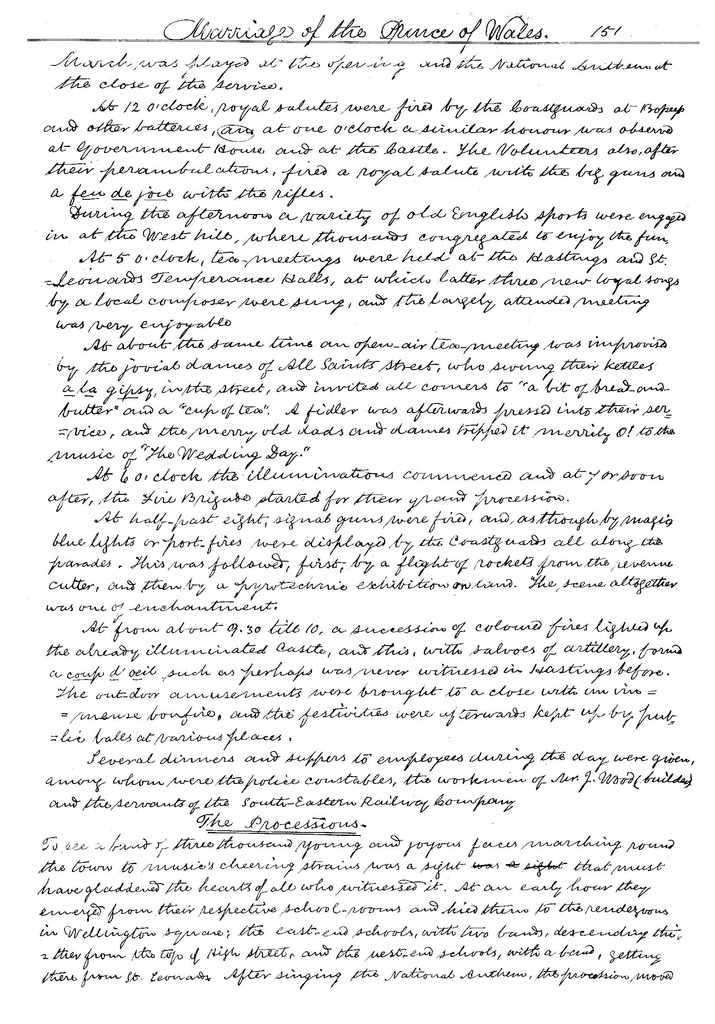 Marriage of the Prince of Wales. 151
March, was played at the opening and the National Anthem at
the close of the service.
At 12 o'clock, royal salutes were fired by the Coastguards at Bopeep
and other batteries, and at one o'clock a similar honour was observed
at Government House and at the Castle. The Volunteers also, after
their perambulations, fired a royal salute with the big guns and
a feu de joie with the rifles.
During the afternoon a variety of old English sports were engaged
in at the West hill, where thousands congregated to enjoy the fun.
At 5 o'clock, tea-meetings were held at the Hastings and St.
=Leonards Temperance Halls, at which latter three new loyal songs
by a local composer were sung, and the largely attended meeting
was very enjoyable
At about the same time an open-air tea-meeting was improvised
by the jovial dames of All Saints street, who swung their kettles
a la gipsy, in the street, and invited all comers to "a bit of bread-and-
butter" and a "cup of tea". A fidler was afterwards pressed into their ser=
=vice, and the merry old dads and dames tripped it merrily O! to the
music of "The Wedding Day."
At 6 o'clock the illuminations commenced and at 7 or soon
after, the Fire Brigade started for their grand procession.
At half-past eight, signal guns were fired, and, as though by magic
blue lights or port-fires were displayed by the Coastguards all along the
parades. This was followed, first, by a flight of rockets from the revenue
cutter, and then by a pyrotechnic exhibition on land. The scene altogether
was one of enchantment.
At from about 9.30 till 10, a succession of coloured fires lighted up
the already illuminated Castle, and this, with salvoes of artillery, formed
a coup d'oeil such as perhaps was never witnessed in Hastings before.
The out-door amusements were brought to a close with an im=
=mense bonfire, and the festivities were afterwards kept up by pub=
=lic balls at various places.
Several dinners and suppers to employees during the day were given,
among whom were the police constables, the workmen of Mr. J. Wood (builder)
and the servants of the South-Eastern Railway Company
The Processions.
To see a band of three thousand young and joyous faces marching round
the town to music's cheering strains was a sight was a sight that must
have gladdened the hearts of all who witnessed it. At an early hour they
emerged from their respective school-rooms and hied them to the rendezvous
in Wellington square; the east-end schools, with two bands, descending thi=
=ther from the top of High street, and the west-end schools, with a band, getting
there from St. Leonards. After singing the National Anthem, the procession moved